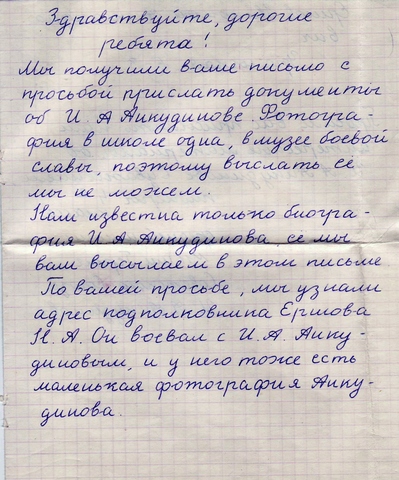 Здравствуйте, дорогие
ребята!
Мы получили ваше письмо с
просьбой прислать документы
об И. А Анкудинове. Фотогра-
фия в школе одна, в музее боевой
славы, поэтому выслать её
мы не можем.
Нам известна только биогра-
фия И. А. Анкудинова, её мы
вам высылаем в этом письме
По вашей просьбе, мы узнали
адрес подполковника Ершова
Н. А. Он воевал с И. А. Анку-
диновым, и у него тоже есть
маленькая фотография Анку-
динова.